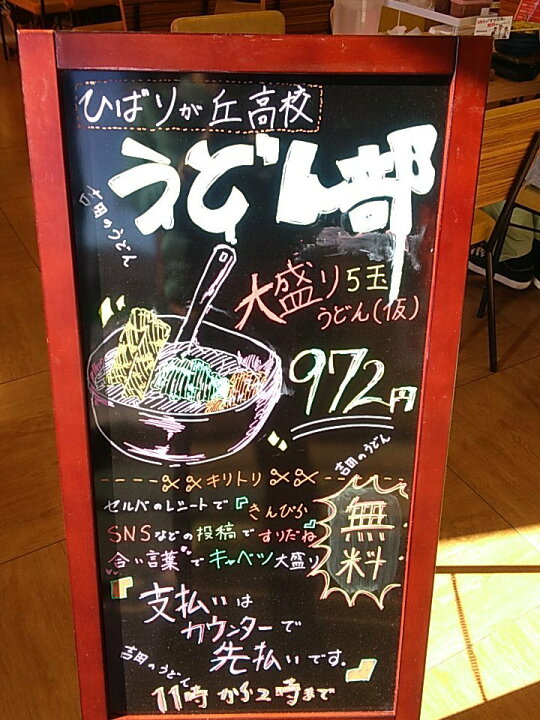 ひばりが丘高校
うどん部
吉田のうどん
大盛り5玉
うどん(仮)
972円
吉田のうどん
キリトリ
セルバのレシートで『きんぴら』
SNSなどの投稿ですりだね
"合い言葉"でキャベツ大盛り
無料
支払いは
カウンターで
先払いです。
吉田のうどん
11時から2時まで